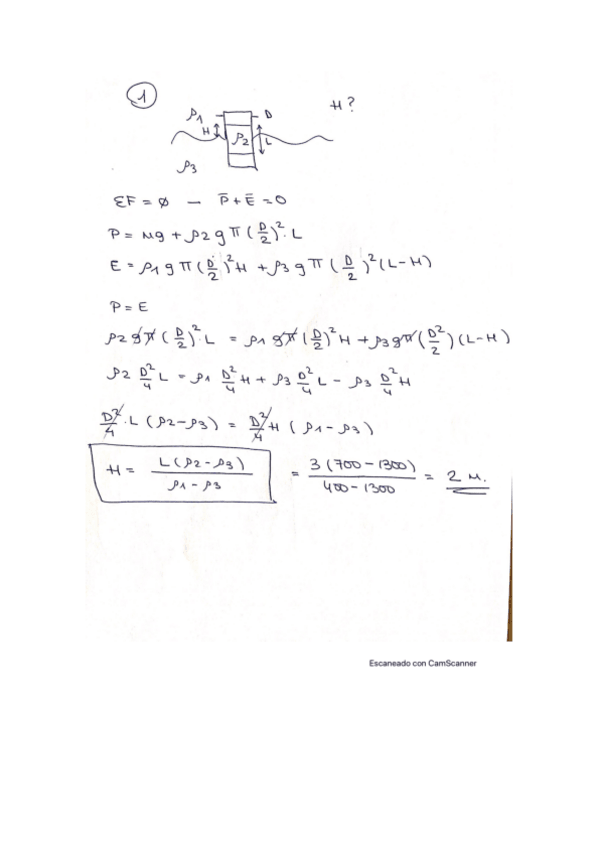 1
H?
ρ1 D
H ρ2 L
ρ3
ΣF = ∅ — P̄ + Ē = 0
P = Mg + ρ2 g π (D/2)² · L
E = ρ1 g π (D/2)² H + ρ3 g π (D/2)² (L-H)
P = E
ρ2 g π (D/2)² · L = ρ1 g π (D/2)² H + ρ3 g π (D²/2) (L-H)
ρ2 D²/4 L = ρ1 D²/4 H + ρ3 D²/4 L - ρ3 D²/4 H
D²/4 · L (ρ2-ρ3) = D²/4 H (ρ1-ρ3)
H = L(ρ2-ρ3) / ρ1-ρ3 = 3(700-1300) / 400-1300 = 2 M.
Escaneado con CamScanner